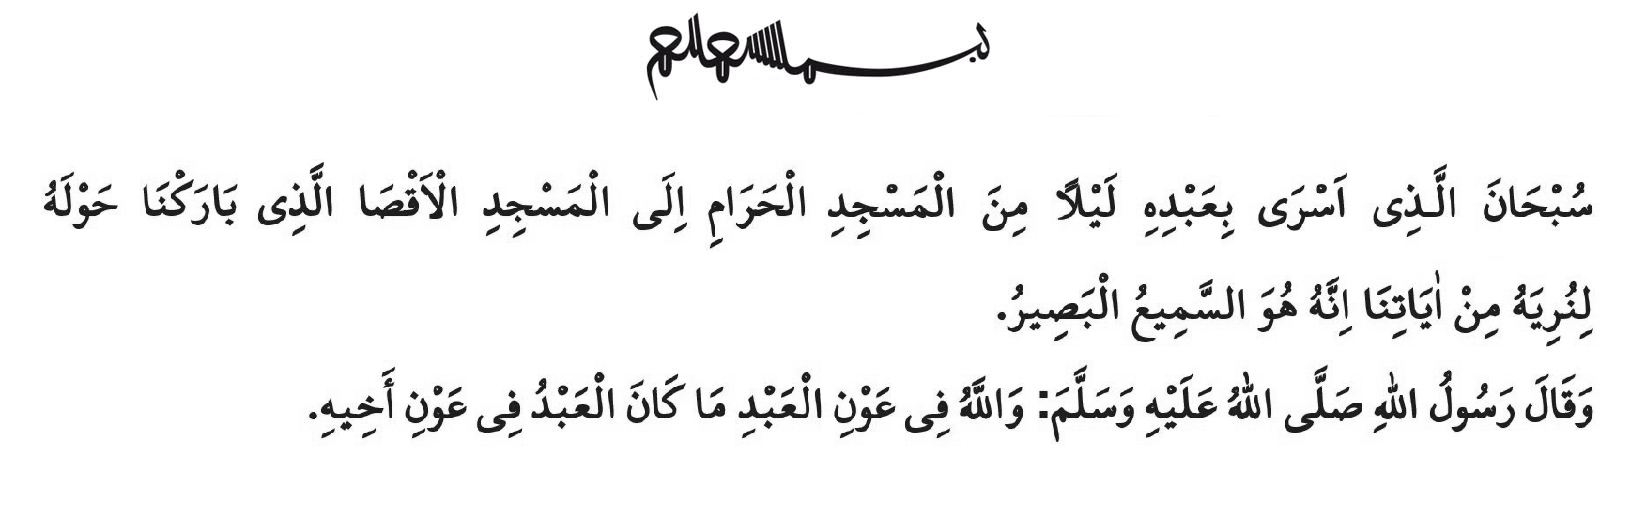 بسم الله الرحمن الرحيم
سُبْحَانَ الَّذِى اَسْرَى بِعَبْدِهِ لَيْلًا مِنَ الْمَسْجِدِ الْحَرَامِ اِلَى الْمَسْجِدِ الْاَقْصَا الَّذِى بَارَكْنَا حَوْلَهُ
لِنُرِيَهُ مِنْ اٰيَاتِنَا اِنَّهُ هُوَ السَّمِيعُ الْبَصِيرُ.
وَقَالَ رَسُولُ اللهِ صَلَّى اللهُ عَلَيْهِ وَسَلَّمَ: وَاللَّهُ فِى عَوْنِ الْعَبْدِ مَا كَانَ الْعَبْدُ فِى عَوْنِ أَخِيهِ.